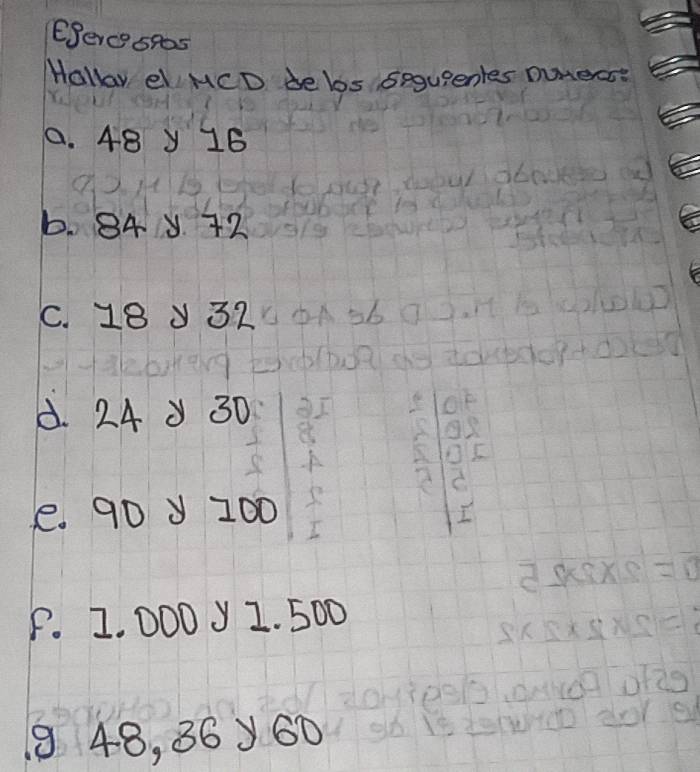 Ejercicios
Hallar el MCD de los siguientes numeros:
a. 48 y 16
b. 84 y 72
c. 18 y 32
d. 24 y 30
e. 90 y 100
f. 1.000 y 1.500
g 48, 36 y 60